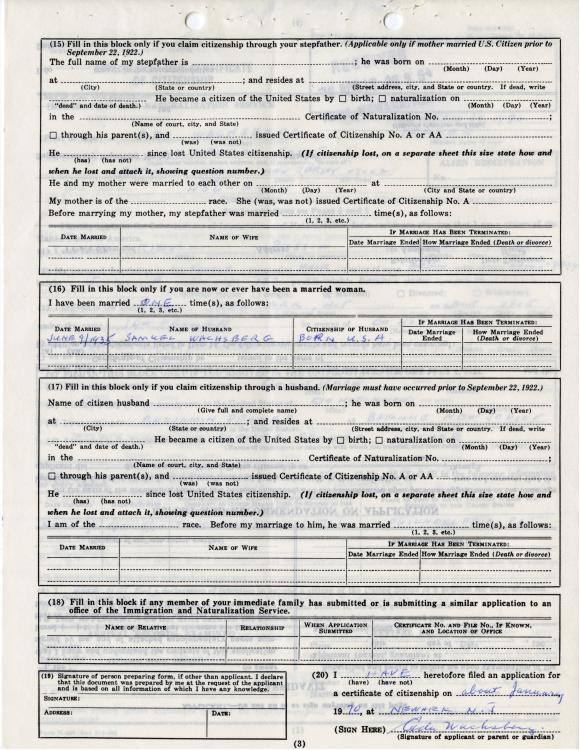 (15) Fill in this block only if you claim citizenship through your stepfather. (Applicable only if mother married U.S. Citizen prior to
September 22, 1922.)
The full name of my stepfather is ; he was born on
(Month) (Day) (Year)
at ; and resides at
(City) (State or country) (Street address, city, and State or country. If dead, write
He became a citizen of the United States by ☐ birth; ☐ naturalization on
"dead" and date of death.) (Month) (Day) (Year)
in the Certificate of Naturalization No. ;
(Name of court, city, and State)
☐ through his parent(s), and issued Certificate of Citizenship No. A or AA
(was) (was not)
He since lost United States citizenship. (If citizenship lost, on a separate sheet this size state how and
(has) (has not)
when he lost and attach it, showing question number.)
He and my mother were married to each other on at
(Month) (Day) (Year) (City and State or country)
My mother is of the race. She (was, was not) issued Certificate of Citizenship No. A
Before marrying my mother, my stepfather was married time(s), as follows:
(1, 2, 3, etc.)
DATE MARRIED NAME OF WIFE IF MARRIAGE HAS BEEN TERMINATED:
Date Marriage Ended How Marriage Ended (Death or divorce)
(16) Fill in this block only if you are now or ever have been a married woman.
I have been married ONE time(s), as follows:
(1, 2, 3, etc.)
DATE MARRIED NAME OF HUSBAND CITIZENSHIP OF HUSBAND IF MARRIAGE HAS BEEN TERMINATED:
Date Marriage Ended How Marriage Ended (Death or divorce)
JUNE 9/1935 SAMUEL WACHSBERG BORN U.S.A
(17) Fill in this block only if you claim citizenship through a husband. (Marriage must have occurred prior to September 22, 1922.)
Name of citizen husband ; he was born on
(Give full and complete name) (Month) (Day) (Year)
at ; and resides at
(City) (State or country) (Street address, city, and State or country. If dead, write
He became a citizen of the United States by ☐ birth; ☐ naturalization on
"dead" and date of death.) (Month) (Day) (Year)
in the Certificate of Naturalization No. ;
(Name of court, city, and State)
☐ through his parent(s), and issued Certificate of Citizenship No. A or AA
(was) (was not)
He since lost United States citizenship. (If citizenship lost, on a separate sheet this size state how and
(has) (has not)
when he lost and attach it, showing question number.)
I am of the race. Before my marriage to him, he was married time(s), as follows:
(1, 2, 3, etc.)
DATE MARRIED NAME OF WIFE IF MARRIAGE HAS BEEN TERMINATED:
Date Marriage Ended How Marriage Ended (Death or divorce)
(18) Fill in this block if any member of your immediate family has submitted or is submitting a similar application to an
office of the Immigration and Naturalization Service.
NAME OF RELATIVE RELATIONSHIP WHEN APPLICATION SUBMITTED CERTIFICATE NO. AND FILE NO., IF KNOWN, AND LOCATION OF OFFICE
(19) Signature of person preparing form, if other than applicant. I declare
that this document was prepared by me at the request of the applicant
and is based on all information of which I have any knowledge.
SIGNATURE:
ADDRESS: DATE:
(20) I HAVE heretofore filed an application for
(have) (have not)
a certificate of citizenship on about January
1970, at NEWARK N.J
(SIGN HERE) Wachsberg
(Signature of applicant or parent or guardian)
(3)